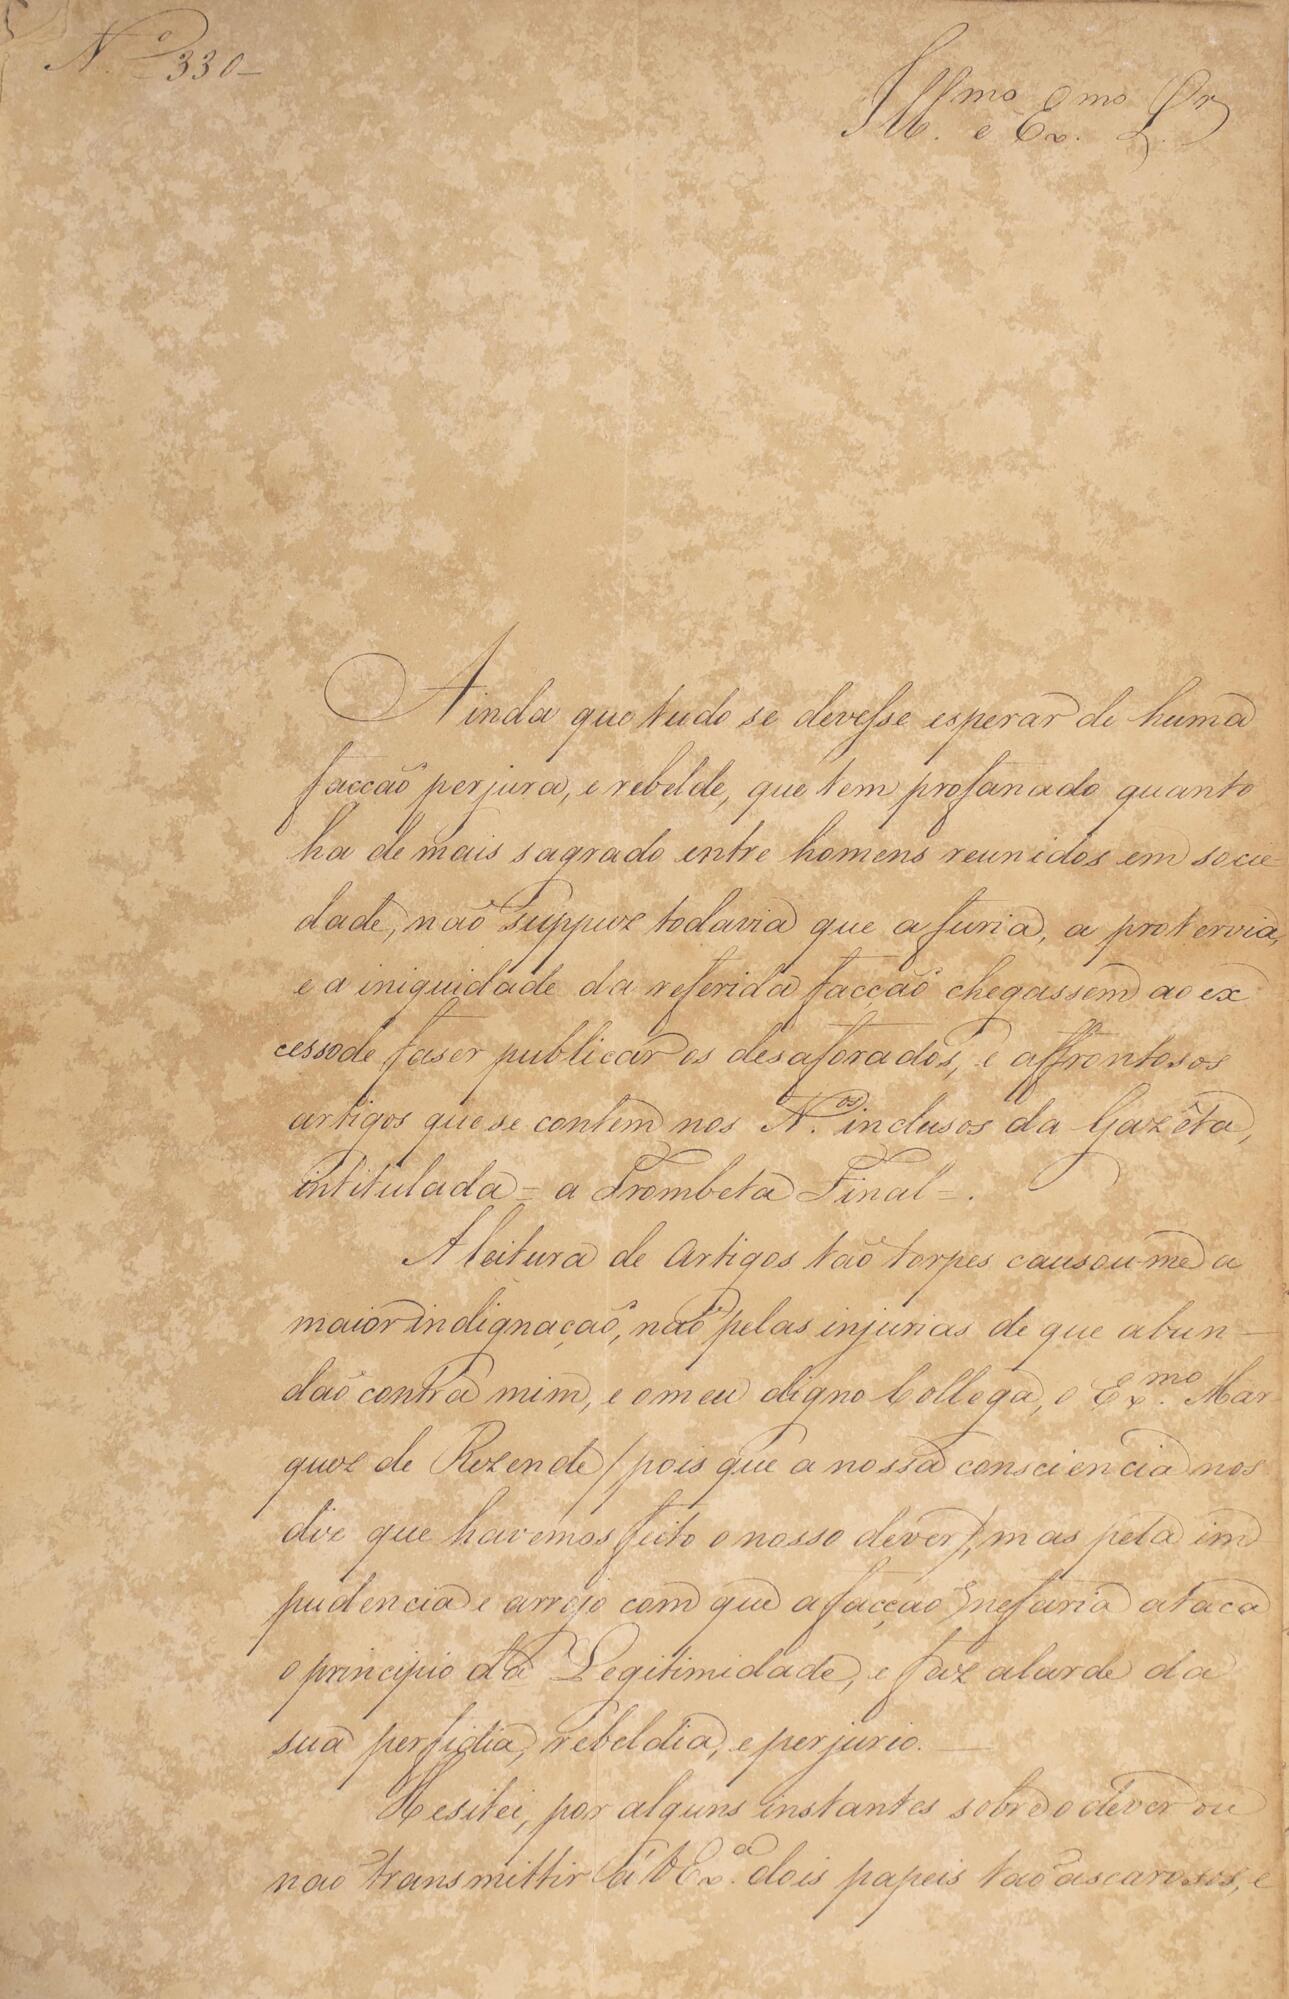 N.º 330_
Ill.mo e Ex.mo Sr
Ainda que tudo se devesse esperar de huma
facção perjura, e rebelde, que tem profanado quanto
ha de mais sagrado entre homens reunidos em socie-
dade, não suppuz todavia que a furia, a protervia,
e a iniquidade da referida facção chegassem ao ex
cesso de faser publicar os desaforados, e affrontosos
artigos que se contem nos N.os inclusos da Gazêta,
intitulada = a Trombeta Final =.
A leitura de artigos tão torpes causou-me a
maior indignação, não pelas injurias de que abun-
dão contra mim, e o meu digno Collega, o Ex.mo Mar-
quez de Rezende / pois que a nossa consciencia nos
diz que havemos feito o nosso dever /, mas pela im
pudencia e arrojo com que a facção nefaria ataca
o principio da Legitimidade, e faz alarde da
sua perfidia, rebeldia, e perjurio. —
Hesitei, por alguns instantes sobre o dever ou
não transmittir á V Ex.a dois papeis tão ascarosos, e